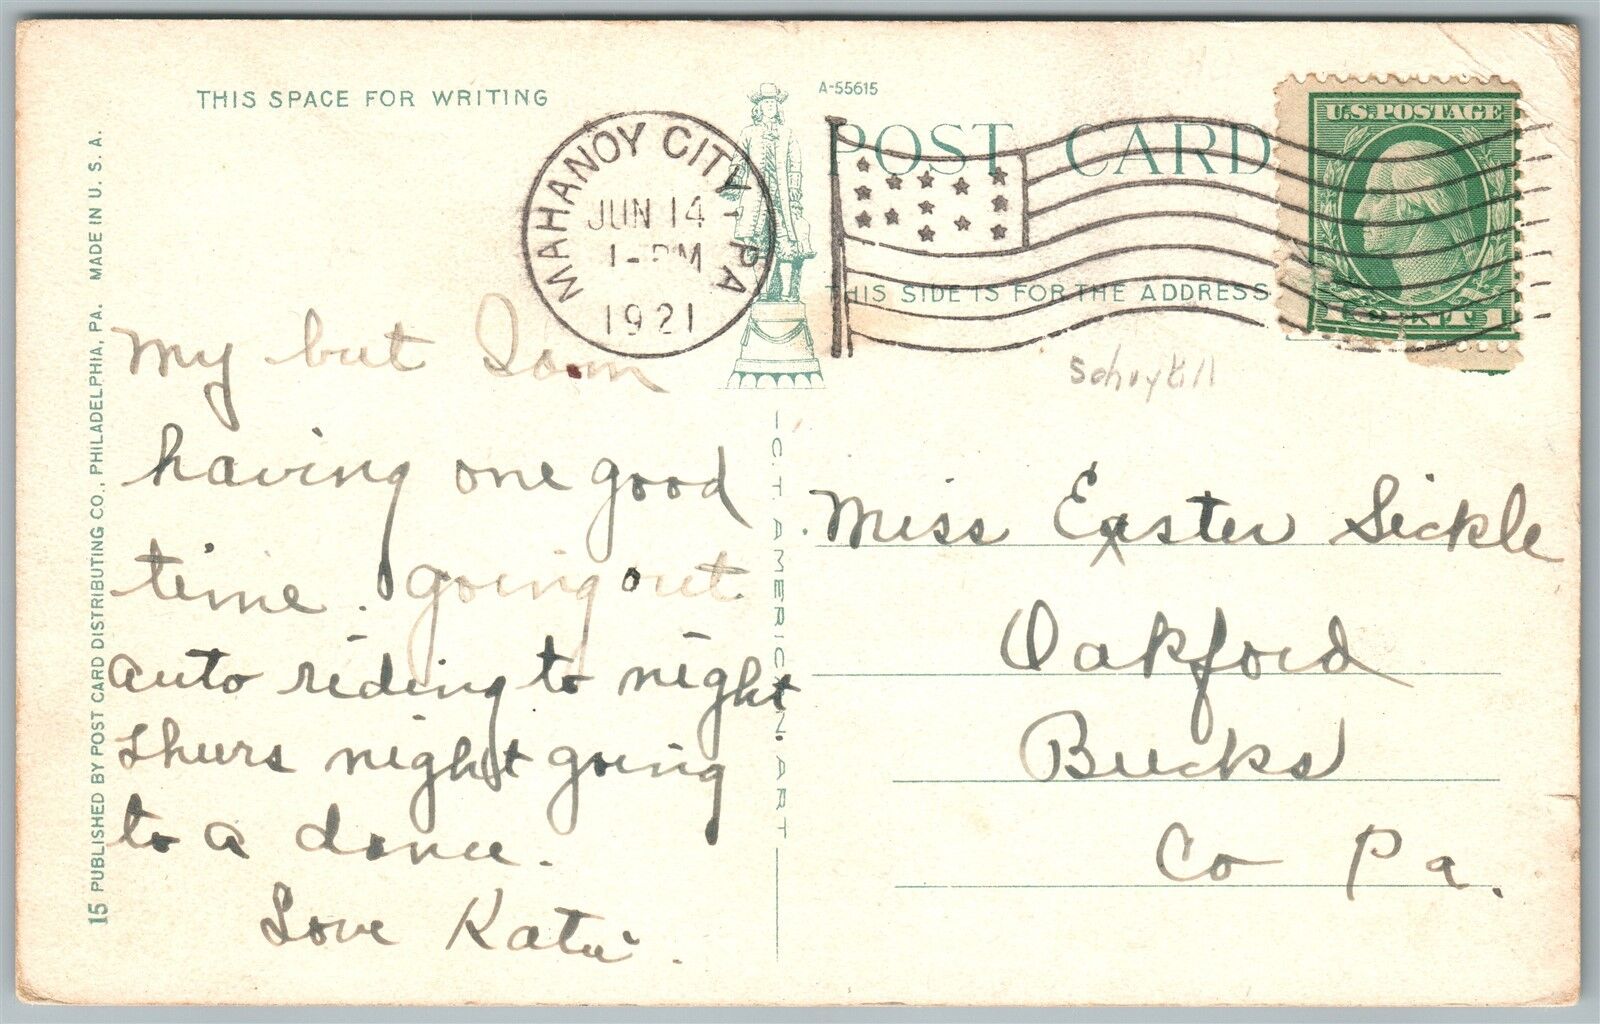 THIS SPACE FOR WRITING
A-55615
MAHANOY CITY PA
JUN 14
1-PM
1921
POST CARD
THIS SIDE IS FOR THE ADDRESS
U.S. POSTAGE
1 1
Schuykill
My but I am
having one good
time. going out
auto riding to night
Thurs night going
to a dance.
Love Katie.
Miss Easter Sickle
Oakford
Bucks
Co Pa.
C.T. AMERICAN ART
15 PUBLISHED BY POST CARD DISTRIBUTING CO., PHILADELPHIA, PA. MADE IN U.S.A.